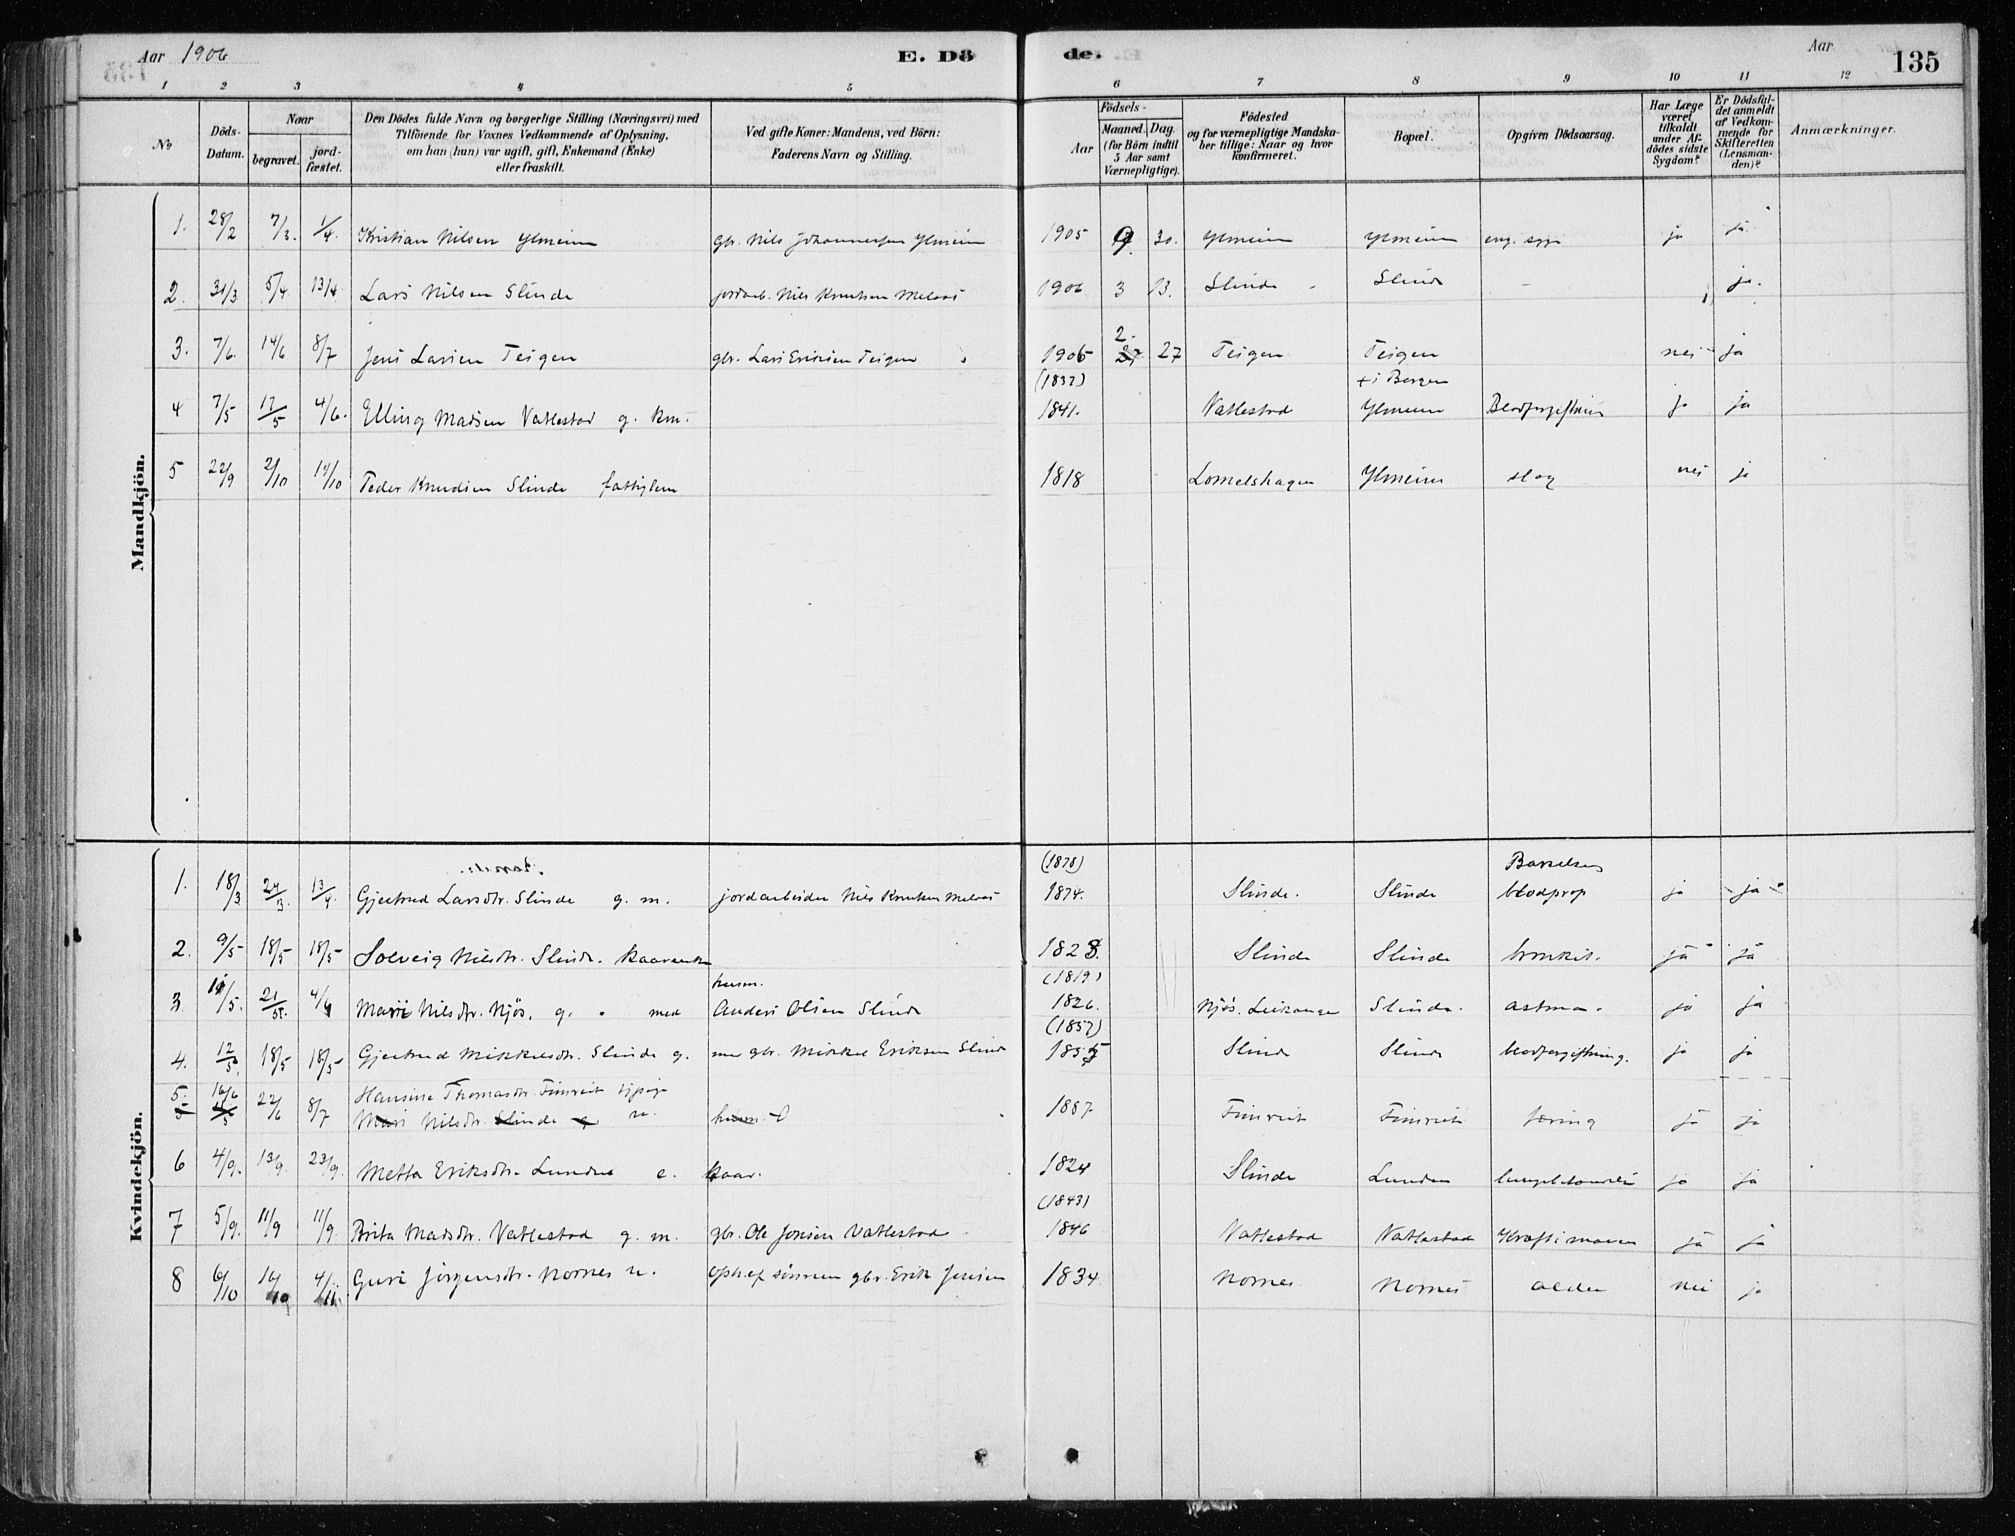 Aar 1906 E. Döde. Aar 135
1 2 3 4 5 6 7 8 9 10 11 12
No
Döds-Datum.
Naar
begravet.
jordfæstet.
Den Dödes fulde Navn og borgerlige Stilling (Næringsvei) med
Tilföiende for Voxnes Vedkommende af Oplysning,
om han (hun) var ugift, gift, Enkemand (Enke)
eller fraskilt.
Ved gifte Koner: Mandens, ved Börn:
Faderens Navn og Stilling.
Födsels-
Aar
Maaned. Dag.
(for Börn indtil
5 Aar samt
Værnepligtige).
Födested
og for værnepligtige Mandska-
ber tillige: Naar og hvor
konfirmeret.
Bopæl.
Opgiven Dödsaarsag.
Har Læge
været
tilkaldt
under Af-
dödes sidste
Sygdom?
Er Dödsfal-
det anmeldt
af Vedkom-
mende for
Skifteretten
(Lensman-
den)?
Anmærkninger.
Mandkjön.
1. 28/2 7/3. 1/4. Kristian Nilsen Ylmeim gbr. Nils Johannessen Ylmeim 1905 9. 30. Ylmeim Ylmeim eng. syge ja ja
2. 31/3 5/4 13/4. Lars Nilsen Slinde jordarb. Nils Knutsen Melaas 1906 3 13. Slinde - Slinde - ja.
3. 7/6. 14/6 8/7 Jens Larsen Teigen gbr. Lars Eriksen Teigen 1905 2. 27 Teigen Teigen nei ja
(1837) + i Bergen
4 7/5 17/5 4/6. Elling Madsen Vatlestad g. km. 1841. Vatlestad Ylmeim Blodforgiftning ja ja
5 22/9 2/10 14/10 Peder Knudsen Slinde fattiglem 1818 Lomelshagen Ylmeim slag nei ja
Kvindekjön.
(1878) Barselsen
1. 18/3 27/3. 13/4. Gjertrud Larsdtr. Slinde g. m. jordarbeider Nils Knutsen Melaas 1874. Slinde. Slinde blodprop ja ja
2. 9/5 18/5 18/5 Solveig Nilsdtr. Slinde. kaarenke 1828. Slinde Slinde bronkit. ja ja
husm. (1819)
3. 11/5. 21/5. 4/6 Mari Nilsdtr. Njøs, g. med Anders Olsen Slinde 1826. Njøs. Leikanger Slinde. astma. ja ja
(1857)
4. 12/5. 18/5 18/5 Gjertrud Mikkelsdtr. Slinde g. m gbr. Mikkel Eriksen Slinde 1855 Slinde Slinde blodforgiftning. ja ja
5. 16/6 22/6 8/7 Hansine Thomasdtr. Fimreit
Mari Nilsdtr. Slinde u. husm. 1887 Fimreit Fimreit tæring ja ja
6 4/9. 13/9. 23/9. Metta Eriksdtr. Lunden e. kaar. 1824 Slinde Lunden ja ja
(1843)
7 5/9. 11/9 11/9. Brita Madsdtr. Vatlestad g. m. gbr. Ole Jonsen Vatlestad 1846 Vatlestad Vatlestad Kræft i maven ja ja
8 6/10 16/10 4/11. Guri Jörgensdtr. Nornes u. oph. af sönnen gbr. Erik Jensen 1834. Nornes Nornes alder nei ja